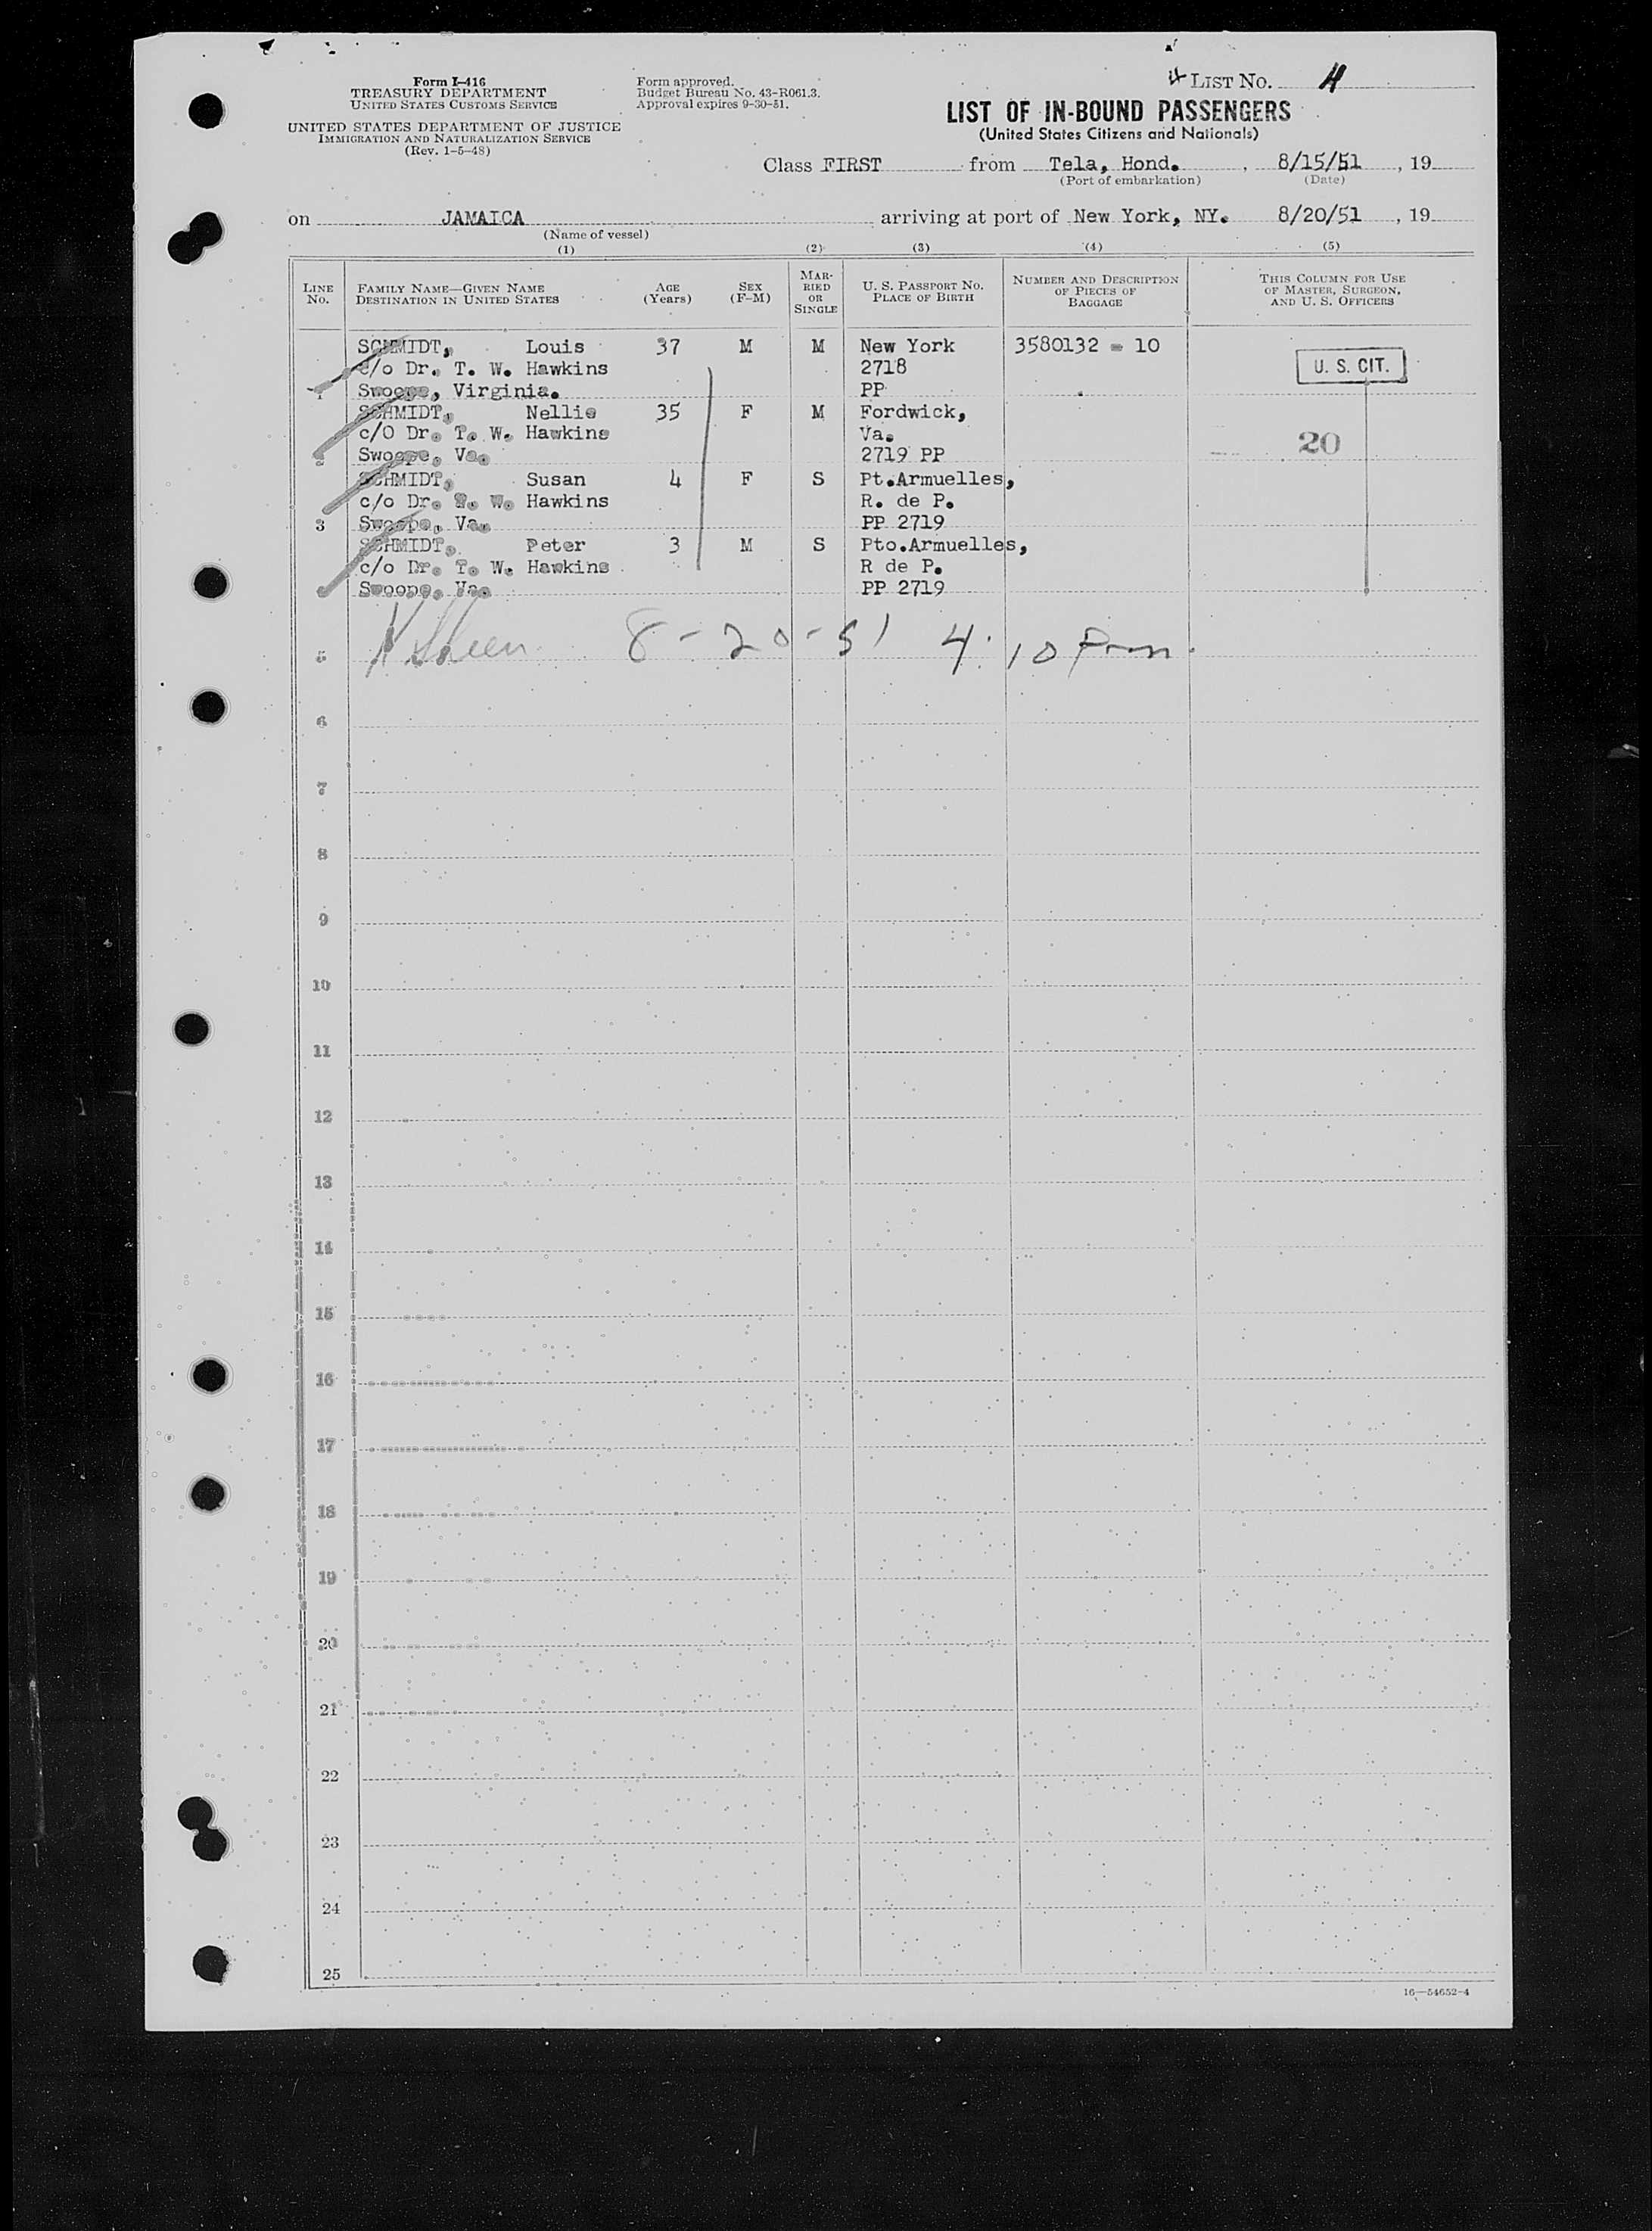 Form I-416
TREASURY DEPARTMENT
UNITED STATES CUSTOMS SERVICE
UNITED STATES DEPARTMENT OF JUSTICE
IMMIGRATION AND NATURALIZATION SERVICE
(Rev. 1-5-48)
Form approved.
Budget Bureau No. 43-R061.3.
Approval expires 9-30-51.
4 LIST No. 4
LIST OF IN-BOUND PASSENGERS
(United States Citizens and Nationals)
Class FIRST from Tela, Hond. , 8/15/51 , 19
(Port of embarkation) (Date)
on JAMAICA arriving at port of New York, NY. 8/20/51 , 19
(Name of vessel)
(1) (2) (3) (4) (5)
LINE No.
FAMILY NAME—GIVEN NAME
DESTINATION IN UNITED STATES
AGE (Years)
SEX (F-M)
MARRIED OR SINGLE
U. S. PASSPORT NO.
PLACE OF BIRTH
NUMBER AND DESCRIPTION OF PIECES OF BAGGAGE
THIS COLUMN FOR USE OF MASTER, SURGEON, AND U. S. OFFICERS
SCHMIDT, Louis 37 M M New York 3580132 - 10
c/o Dr. T. W. Hawkins 2718 U. S. CIT.
1 Swoope, Virginia. PP
SCHMIDT, Nellie 35 F M Fordwick,
c/O Dr. T. W. Hawkins Va. 20
2 Swoope, Va. 2719 PP
SCHMIDT, Susan 4 F S Pt.Armuelles,
c/o Dr. T. W. Hawkins R. de P.
3 Swoope, Va. PP 2719
SCHMIDT, Peter 3 M S Pto.Armuelles,
c/o Dr. T. W. Hawkins R de P.
Swoope, Va. PP 2719
5 8-20-51 4:10 Pm
6
7
8
9
10
11
12
13
14
15
16
17
18
19
20
21
22
23
24
25
16—54652-4